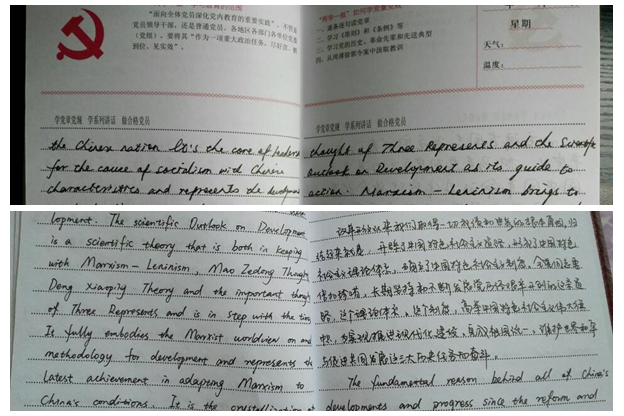 "面向全体党员深化党内教育的重要实践"，不管是
党员领导干部，还是普通党员，各地区各部门各单位党委
(党组)，要将其"作为一项重大政治任务，尽好责、
到位、见实效"。
"两学一做"如何学党章党规
一、逐条逐句读党章
二、学习《准则》和《条例》等
三、学习党的历史、革命先辈和先进典型
四、从周薄徐郭令案中汲取教训
星期
天气：
温度：
学党章党规 学系列讲话 做合格党员
the Chinese nation It's the core of leaders
for the cause of socialism with Chinese
characteristics and represents the
学党章党规 学系列讲话 做合格党员
thought of Three Represents and the Scientific
Outlook on Development as its guide to
action. Marxism - Leninism brings to
lopment. The scientific Outlook on Developmen
is a scientific theory that is both in keeping
with Marxism - Leninism, Mao Zedong Though
Deng xiaoping Theory and the important though
of Three Represents and is in step with the tim
It fully embodies the Marxist worldview on and
methodology for development and represents th
Latest achievement in adapting Marxism to
China's conditions. It is the crystallization of
改革开放以来我们取得一切成绩和进步的根本原因，归
结起来就是：开辟了中国特色社会主义道路，形成了中国特色
社会主义理论体系，确立了中国特色社会主义制度。全党同志要
倍加珍惜，长期坚持和不断发展党历经艰辛开创的这条道
路、这个理论体系、这个制度，高举中国特色社会主义伟大旗
帜，为实现推进现代化建设、完成祖国统一、维护世界和平
与促进共同发展这三大历史任务而奋斗。
The fundamental reason behind all of China's
developments and progress since the reform and